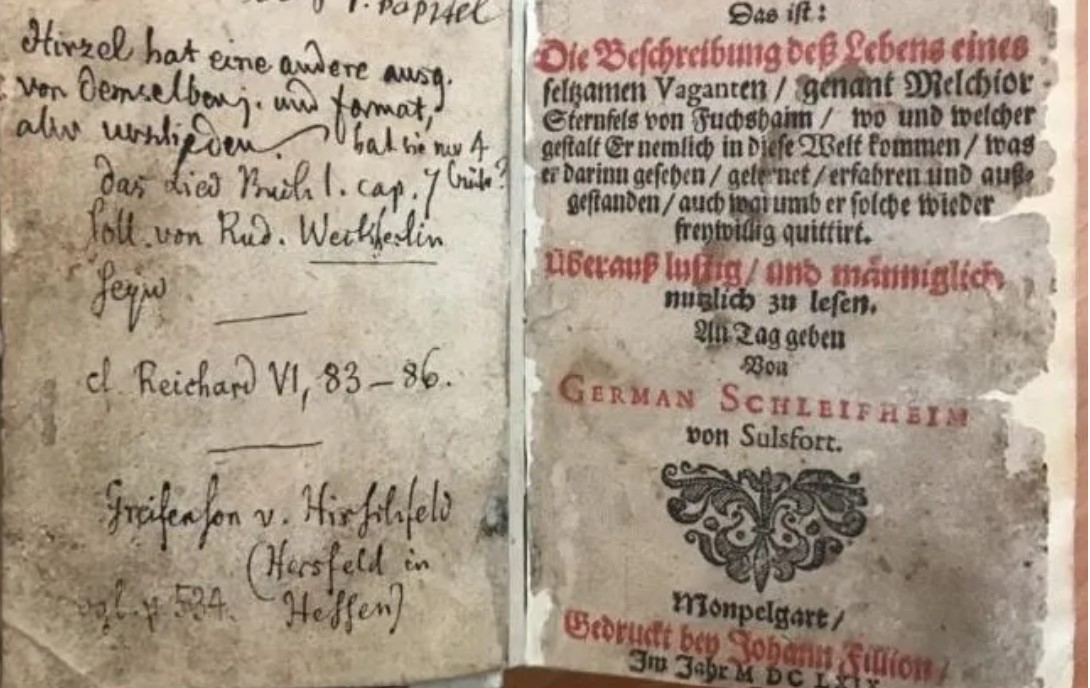 Kapitel
Hirzel hat eine andere ausg.
von demselben j. und format,
aber verschieden. hat sie nur 4
das Lied Buch 1. cap. 7
soll von Rud. Weckherlin
seyn
cf. Reichard VI, 83–86.
Greifenson v. Hirschfeld
(Hersfeld in
vgl. p. 534. Hessen)
Das ist:
Die Beschreibung deß Lebens eines
seltzamen Vaganten / genant Melchior
Sternfels von Fuchshaim / wo und welcher
gestalt Er nemlich in diese Welt kommen / was
er darinn gesehen / gelernet / erfahren und auß-
gestanden / auch warumb er solche wieder
freywillig quittirt.
Überauß lustig / und männiglich
nutzlich zu lesen.
An Tag geben
Von
GERMAN SCHLEIFHEIM
von Sulsfort.
Monpelgart /
Gedruckt bey Johann Fillion /
Im Jahr M DC LXIX